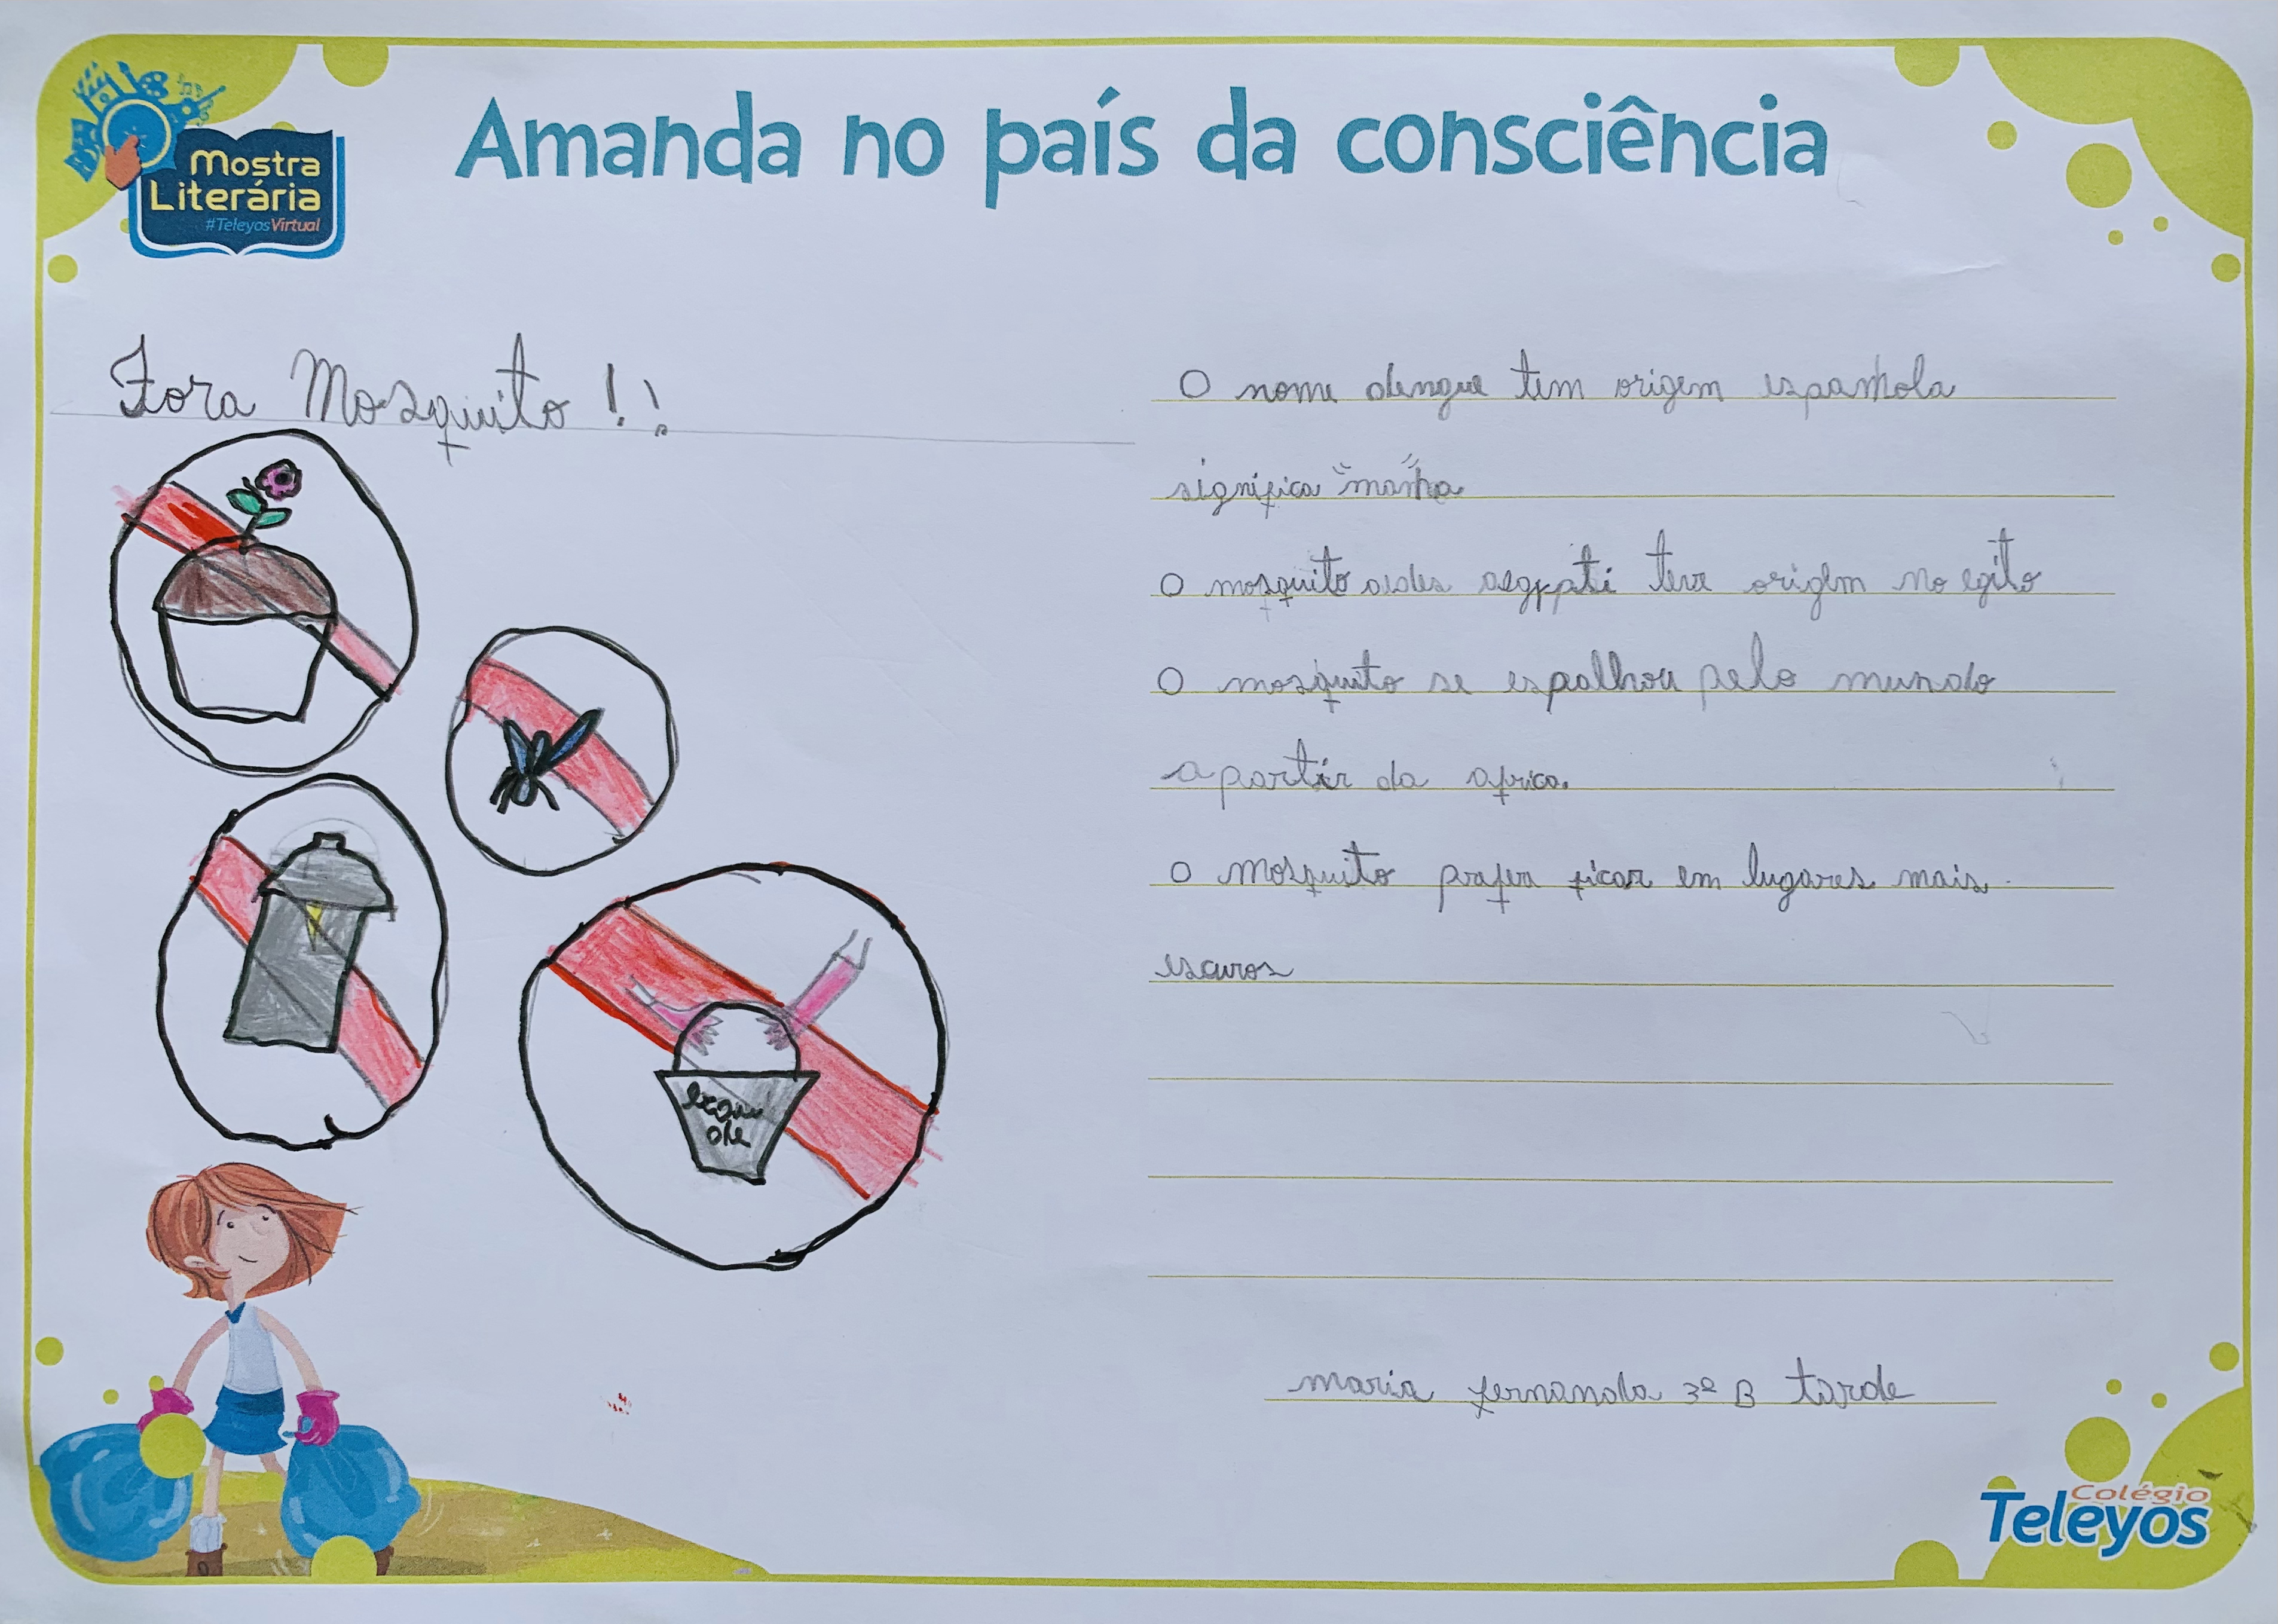 Mostra
Literária
#TeleyosVirtual
Amanda no país da consciência
Fora Mosquito!!
O nome dengue tem origem espanhola
significa "manha"
O mosquito aedes aegypati teve origem no egito
O mosquito se espalhou pelo mundo
apartir da africa.
O mosquito prefere ficar em lugares mais
escuros
maria fernanda 3º B tarde
Colégio
Teleyos